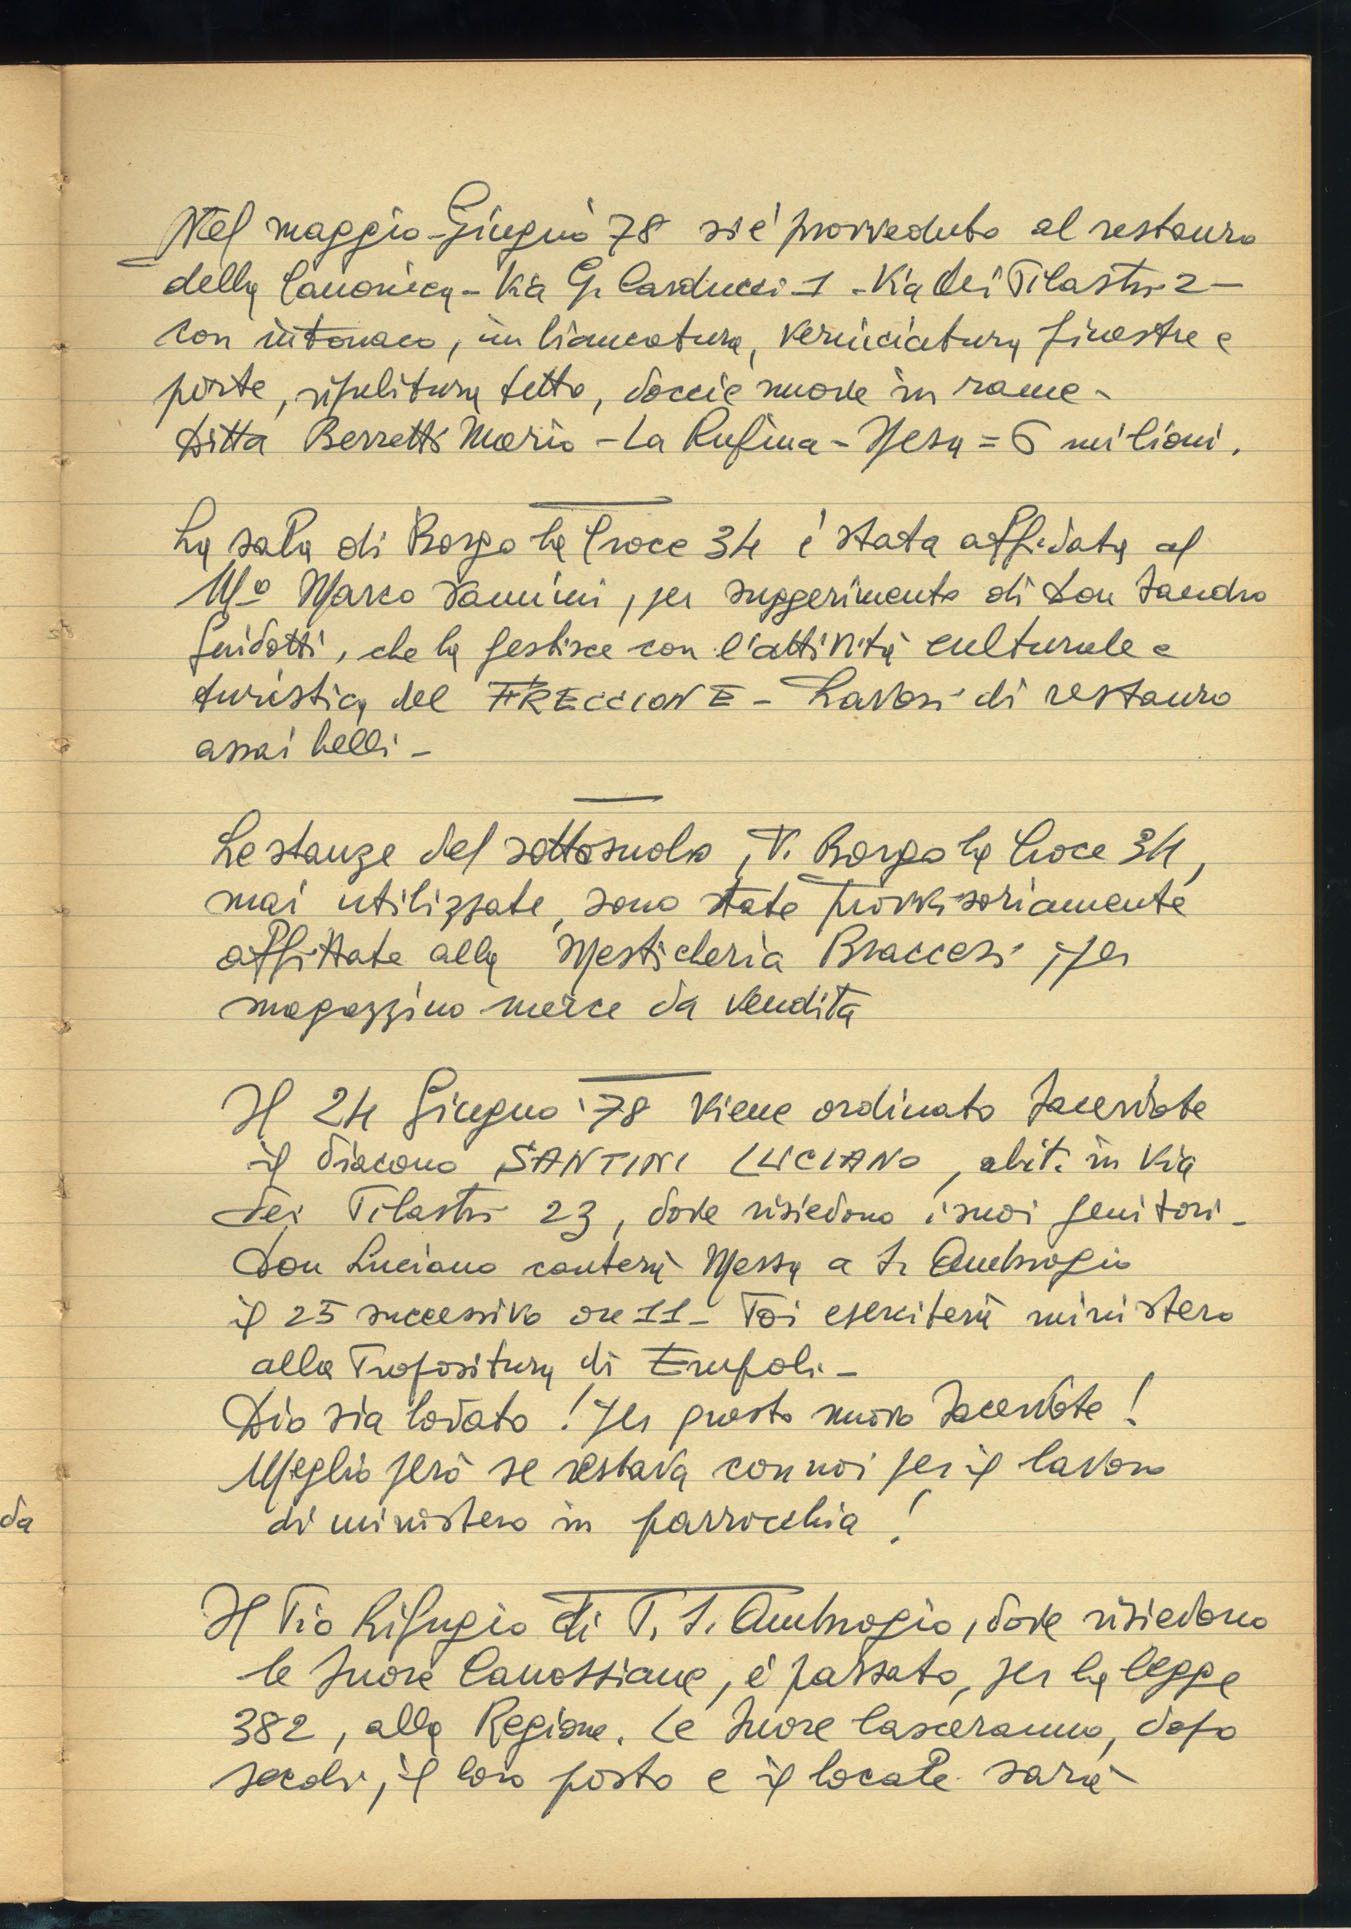 Nel maggio-Giugno '78 si é provveduto al restauro
della Canonica - Via G. Carducci 1 - Via dei Pilastri 2 -
con intonaco, imbiancatura, verniciatura finestre e
porte, ripulitura tetto, doccie nuove in rame -
Ditta Berretti Mario - La Rufina - Spesa = 6 milioni.
La sala di Borgo la Croce 34 é stata affidata al
M.o Marco Vannini, per suggerimento di Don Sandro
Guidotti, che la gestisce con l'attività culturale e
turistica del FRECCIONE - Lavori di restauro
assai belli -
Le stanze del sottosuolo, V. Borgo la Croce 34,
mai utilizzate, sono state provvisoriamente
affittate alla Mesticheria Braccesi, per
magazzino merce da vendita
Il 24 Giugno '78 viene ordinato Sacerdote
il diacono SANTINI LUCIANO, abit. in Via
dei Pilastri 23, dove risiedono i suoi genitori -
Don Luciano canterà Messa a S. Ambrogio
il 25 successivo ore 11 - Poi eserciterà ministero
alla Propositura di Empoli -
Dio sia lodato! per questo nuovo Sacerdote!
Meglio però se restava con noi per il lavoro
di ministero in parrocchia!
Il Pio Rifugio di P. S. Ambrogio, dove risiedono
le Suore Canossiane, é passato, per la legge
382, alla Regione. Le Suore lasceranno, dopo
secoli, il loro posto e il locale sarà
da